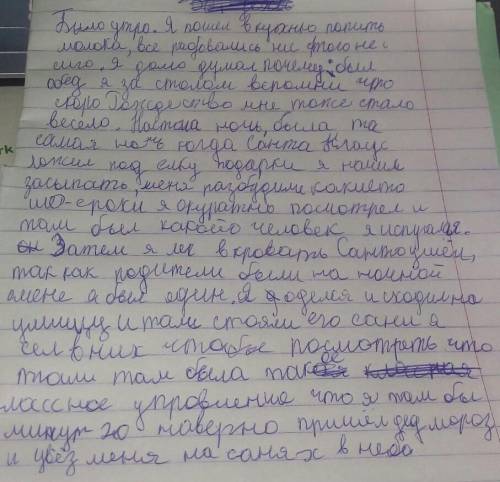 Было утро. Я пошёл в кухню попить
молока, все радовались ни с того не
сиго. Я долго думал почему, был
обед я за столом вспомнил что
скоро Рождество мне тоже стало
весело. Настала ночь, была та
самая ночь когда Санта Клаус
ложил под елку подарки я начил
засыпать, меня разбудили какието
шо-рохи я окуратно посмотрел и
там был какойто человек я испугался.
Затем я лег в кровать Санта ушёл,
так как родители были на ночной
смене я был один. Я оделся и сходил на
улицу и там стояли его сани я
сел в них чтобы посмотреть что
там была такое
лассное упровление что я там был
минут 20 наверно пришёл дед мороз
и увёз меня на санях в небо